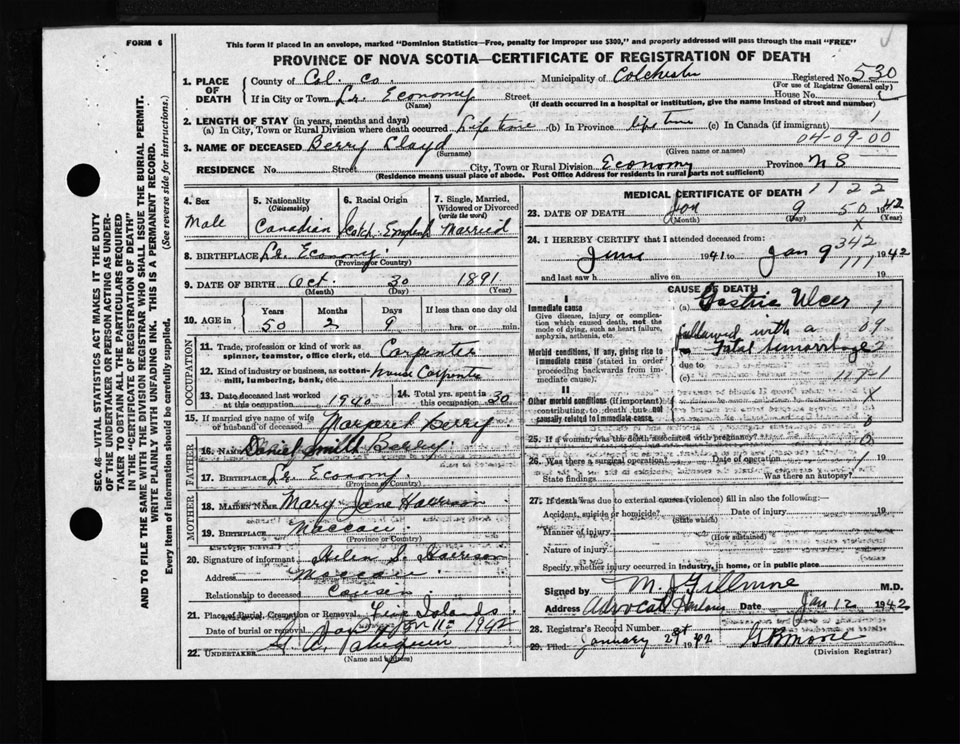 FORM 6
This form if placed in an envelope, marked "Dominion Statistics—Free, penalty for improper use $300," and properly addressed will pass through the mail "FREE"
PROVINCE OF NOVA SCOTIA—CERTIFICATE OF REGISTRATION OF DEATH
1. PLACE OF DEATH
County of Col. Co. Municipality of Colchester Registered No. 530
(For use of Registrar General only)
If in City or Town Lr. Economy Street House No.
(Name) (If death occurred in a hospital or institution, give the name instead of street and number)
2. LENGTH OF STAY (in years, months and days)
(a) In City, Town or Rural Division where death occurred Life time (b) In Province life time (c) In Canada (if immigrant)
04-09-00
3. NAME OF DECEASED Berry Cloyd
(Surname) (Given name or names)
RESIDENCE No. Street City, Town or Rural Division Economy Province N S
(Residence means usual place of abode. Post Office Address for residents in rural parts not sufficient)
4. Sex Male
5. Nationality (Citizenship) Canadian
6. Racial Origin Scotch English
7. Single, Married, Widowed or Divorced (write the word) Married
8. BIRTHPLACE Lr. Economy
(Province or Country)
9. DATE OF BIRTH Oct. 30 1891
(Month) (Day) (Year)
10. AGE in Years Months Days If less than one day old
50 2 9 hrs. or min.
OCCUPATION
11. Trade, profession or kind of work as spinner, teamster, office clerk, etc. Carpenter
12. Kind of industry or business, as cotton-mill, lumbering, bank, etc. House Carpenter
13. Date deceased last worked at this occupation 1940
14. Total yrs. spent in this occupation 30
15. If married give name of wife or husband of deceased Margaret Berry
FATHER
16. NAME Daniel Smith Berry
17. BIRTHPLACE Lr. Economy
MOTHER
18. MAIDEN NAME Mary Jane Harrison
19. BIRTHPLACE Maccan
(Province or Country)
20. Signature of informant Helen S. Harrison
Address Maccan
Relationship to deceased Cousin
21. Place of Burial, Cremation or Removal Five Islands
Date of burial or removal Jan 11 1942
22. UNDERTAKER
(Name and address)
MEDICAL CERTIFICATE OF DEATH 1122
23. DATE OF DEATH Jan 9 50 1942
(Month) (Day) (Year)
24. I HEREBY CERTIFY that I attended deceased from:
June 1941 to Jan 9 1942
342
and last saw h alive on 19
CAUSE OF DEATH
I
Immediate cause
Give disease, injury or complication which caused death, not the mode of dying, such as heart failure, asphyxia, asthenia, etc.
(a) Gastric Ulcer
followed with a
Fatal hemorrhage
Morbid conditions, if any, giving rise to immediate cause (stated in order proceeding backwards from immediate cause).
due to
(c)
II
Other morbid conditions (if important) contributing to death but not causally related to immediate cause.
25. If a woman, was the death associated with pregnancy?
26. Was there a surgical operation? Date of operation 19
State findings Was there an autopsy?
27. If death was due to external causes (violence) fill in also the following:—
Accident, suicide or homicide? Date of injury 19
(State which)
Manner of injury
(How sustained)
Nature of injury
Specify whether injury occurred in industry, in home, or in public place
Signed by M. J. Gillmore M.D.
Address Advocate Harbour Date Jan 12 1942
28. Registrar's Record Number
29. Filed January 1942
(Division Registrar)
SEC. 46—VITAL STATISTICS ACT MAKES IT THE DUTY
OF THE UNDERTAKER OR PERSON ACTING AS UNDERTAKER TO OBTAIN ALL THE PARTICULARS REQUIRED
IN THE "CERTIFICATE OF REGISTRATION OF DEATH"
AND TO FILE THE SAME WITH THE DIVISION REGISTRAR WHO SHALL ISSUE THE BURIAL PERMIT.
WRITE PLAINLY WITH UNFADING INK. THIS IS A PERMANENT RECORD.
Every item of information should be carefully supplied. (See reverse side for instructions.)